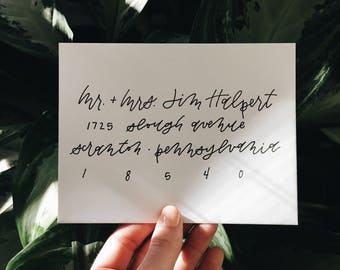 Mr. + Mrs. Jim Halpert
1725 slough avenue
scranton · pennsylvania
1 8 5 4 0